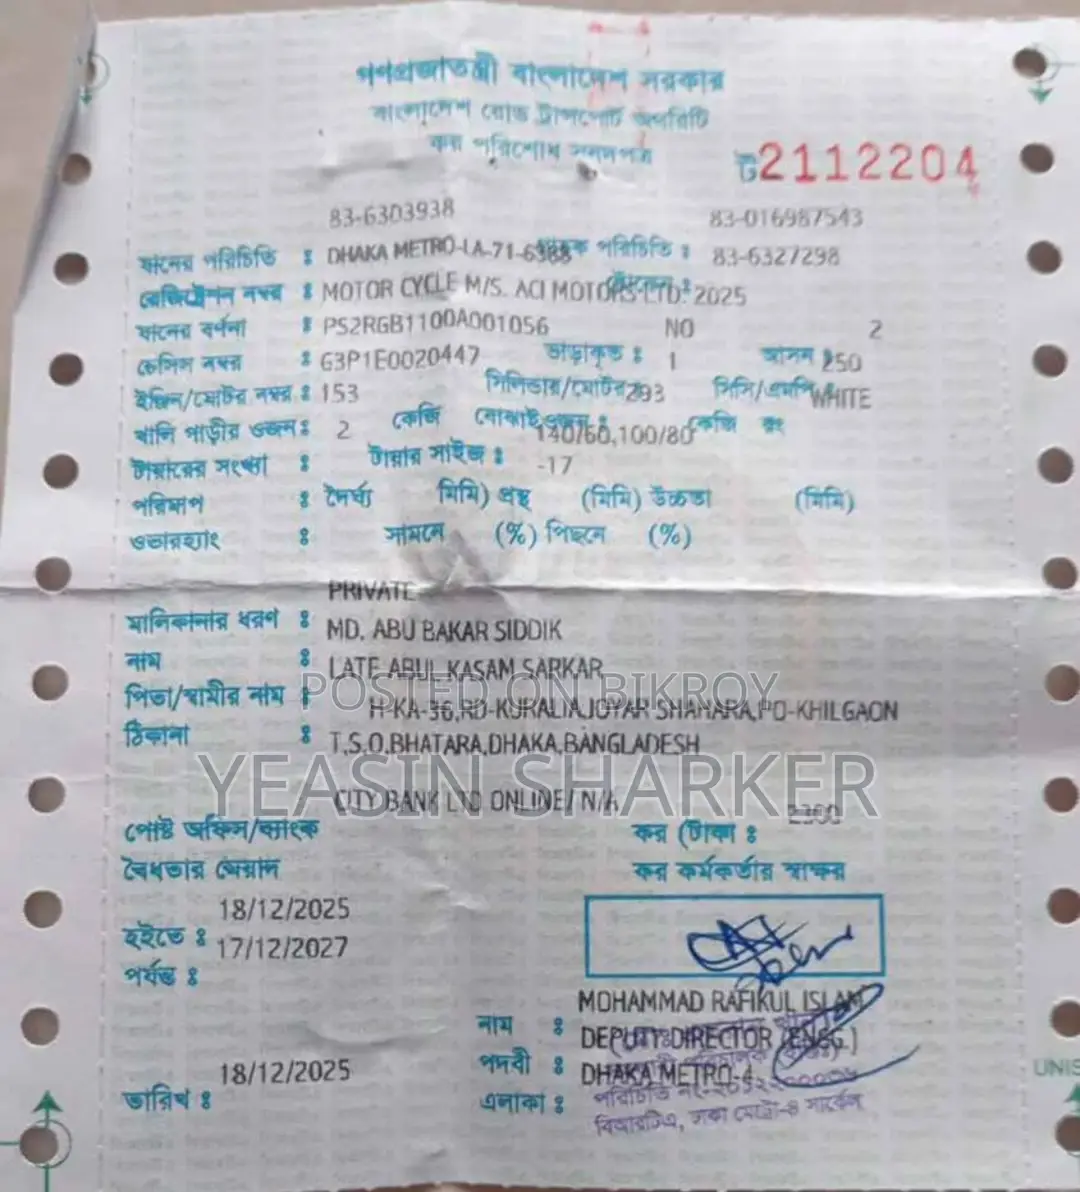 গণপ্রজাতন্ত্রী বাংলাদেশ সরকার
বাংলাদেশ রোড ট্রান্সপোর্ট অথরিটি
কর পরিশোধ সনদপত্র
2112204
83-6303938 83-016987543
যানের পরিচিতি : DHAKA METRO-LA-71-6388 পরিচিতি : 83-6327298
রেজিস্ট্রেশন নম্বর : MOTOR CYCLE M/S. ACI MOTORS LTD. 2025
যানের বর্ণনা : PS2RGB1100A001056 NO 2
চেসিস নম্বর : G3P1E0020447 ভাড়াকৃত : 1 আসন : 250
ইঞ্জিন/মোটর নম্বর : 153 সিলিন্ডার/মোটর 293 সিসি/ WHITE
খালি গাড়ীর ওজন : 2 কেজি বোঝাই ওজন : 140/60,100/80 কেজি রং
টায়ারের সংখ্যা : টায়ার সাইজ : -17
পরিমাপ : দৈর্ঘ্য মিমি) প্রস্থ (মিমি) উচ্চতা (মিমি)
ওভারহ্যাং : সামনে (%) পিছনে (%)
PRIVATE
মালিকানার ধরণ : MD. ABU BAKAR SIDDIK
নাম : LATE ABUL KASAM SARKAR
POSTED ON BIKROY
পিতা/স্বামীর নাম : H-KA-36,RD-KURALIA,JOYAR SHAHARA,PO-KHILGAON
ঠিকানা : T.S.O.BHATARA,DHAKA,BANGLADESH
YEASIN SHARKER
CITY BANK LTD ONLINE/ N/A 2300
পোষ্ট অফিস/ব্যাংক কর (টাকা :
বৈধতার মেয়াদ কর কর্মকর্তার স্বাক্ষর
18/12/2025
হইতে : 17/12/2027
পর্যন্ত :
MOHAMMAD RAFIKUL ISLAM
নাম : DEPUTY DIRECTOR (ENGG.)
পদবী : DHAKA METRO-4
18/12/2025
তারিখ : এলাকা :
বিআরটিএ, ঢাকা মেট্রো-৪ সার্কেল
UNIS